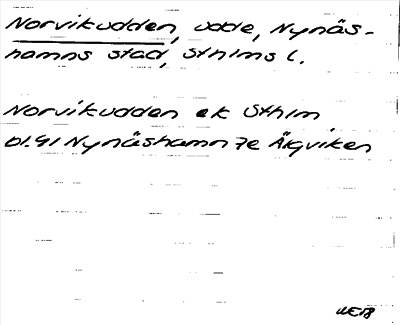 Norvikudden, udde, Nynäs-
hamns stad, Sthlms l.
Norvikudden ek Sthlm
bl. 91 Nynäshamn 7e Älgviken